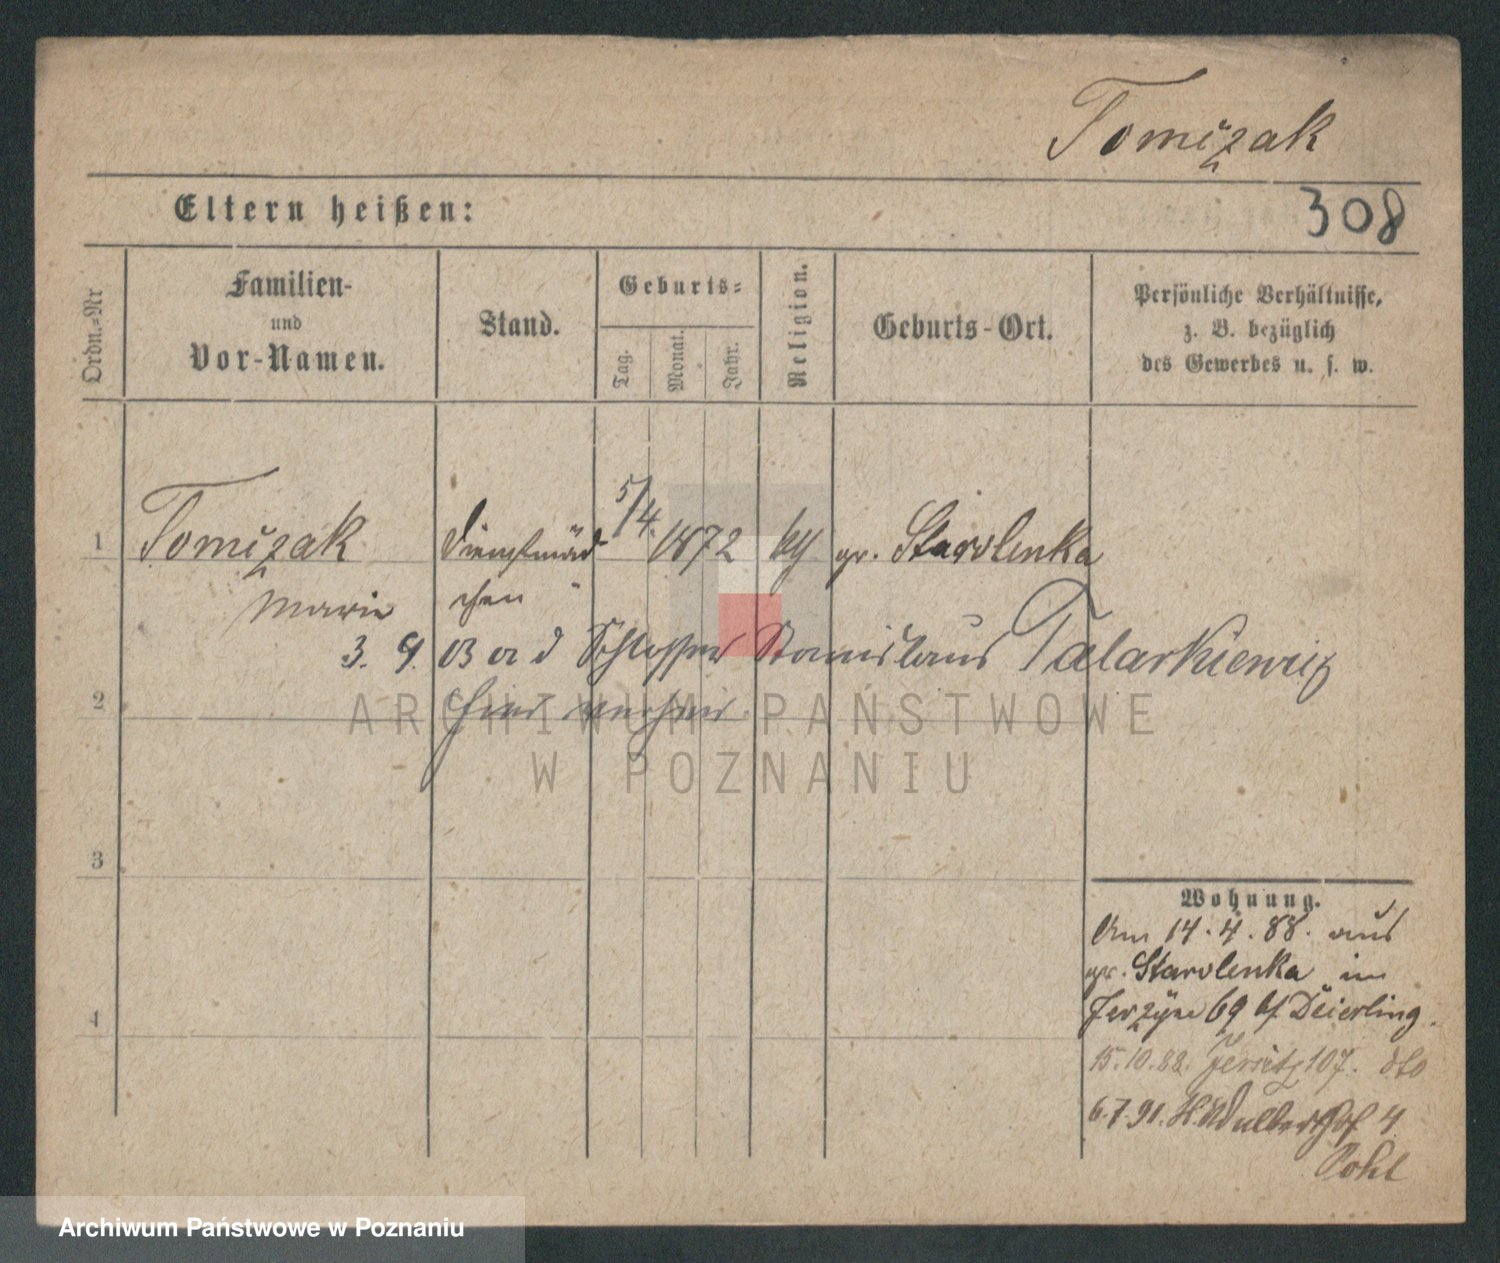 Tomczak
Eltern heißen:
308
Ordn.-Nr
Familien-
und
Vor-Namen.
Stand.
Geburts-
Tag.
Monat.
Jahr.
Religion.
Geburts-Ort.
Persönliche Verhältnisse,
z. B. bezüglich
des Gewerbes u. s. w.
1 Tomczak Dienstmäd 5/4. 1872 gr. Starolenka
Marie chen
3. 9. 03 a d Schlosser Stanislaus Talarkiewicz
2 hier
3
4
Wohnung.
Am 14.4.88. aus
gr. Starolenka in
Jerzyce 69 bf Deierling.
15.10.88. Jersitz 107. dto
6.7.91. 4
Pohl
ARCHIWUM PAŃSTWOWE
W POZNANIU
Archiwum Państwowe w Poznaniu